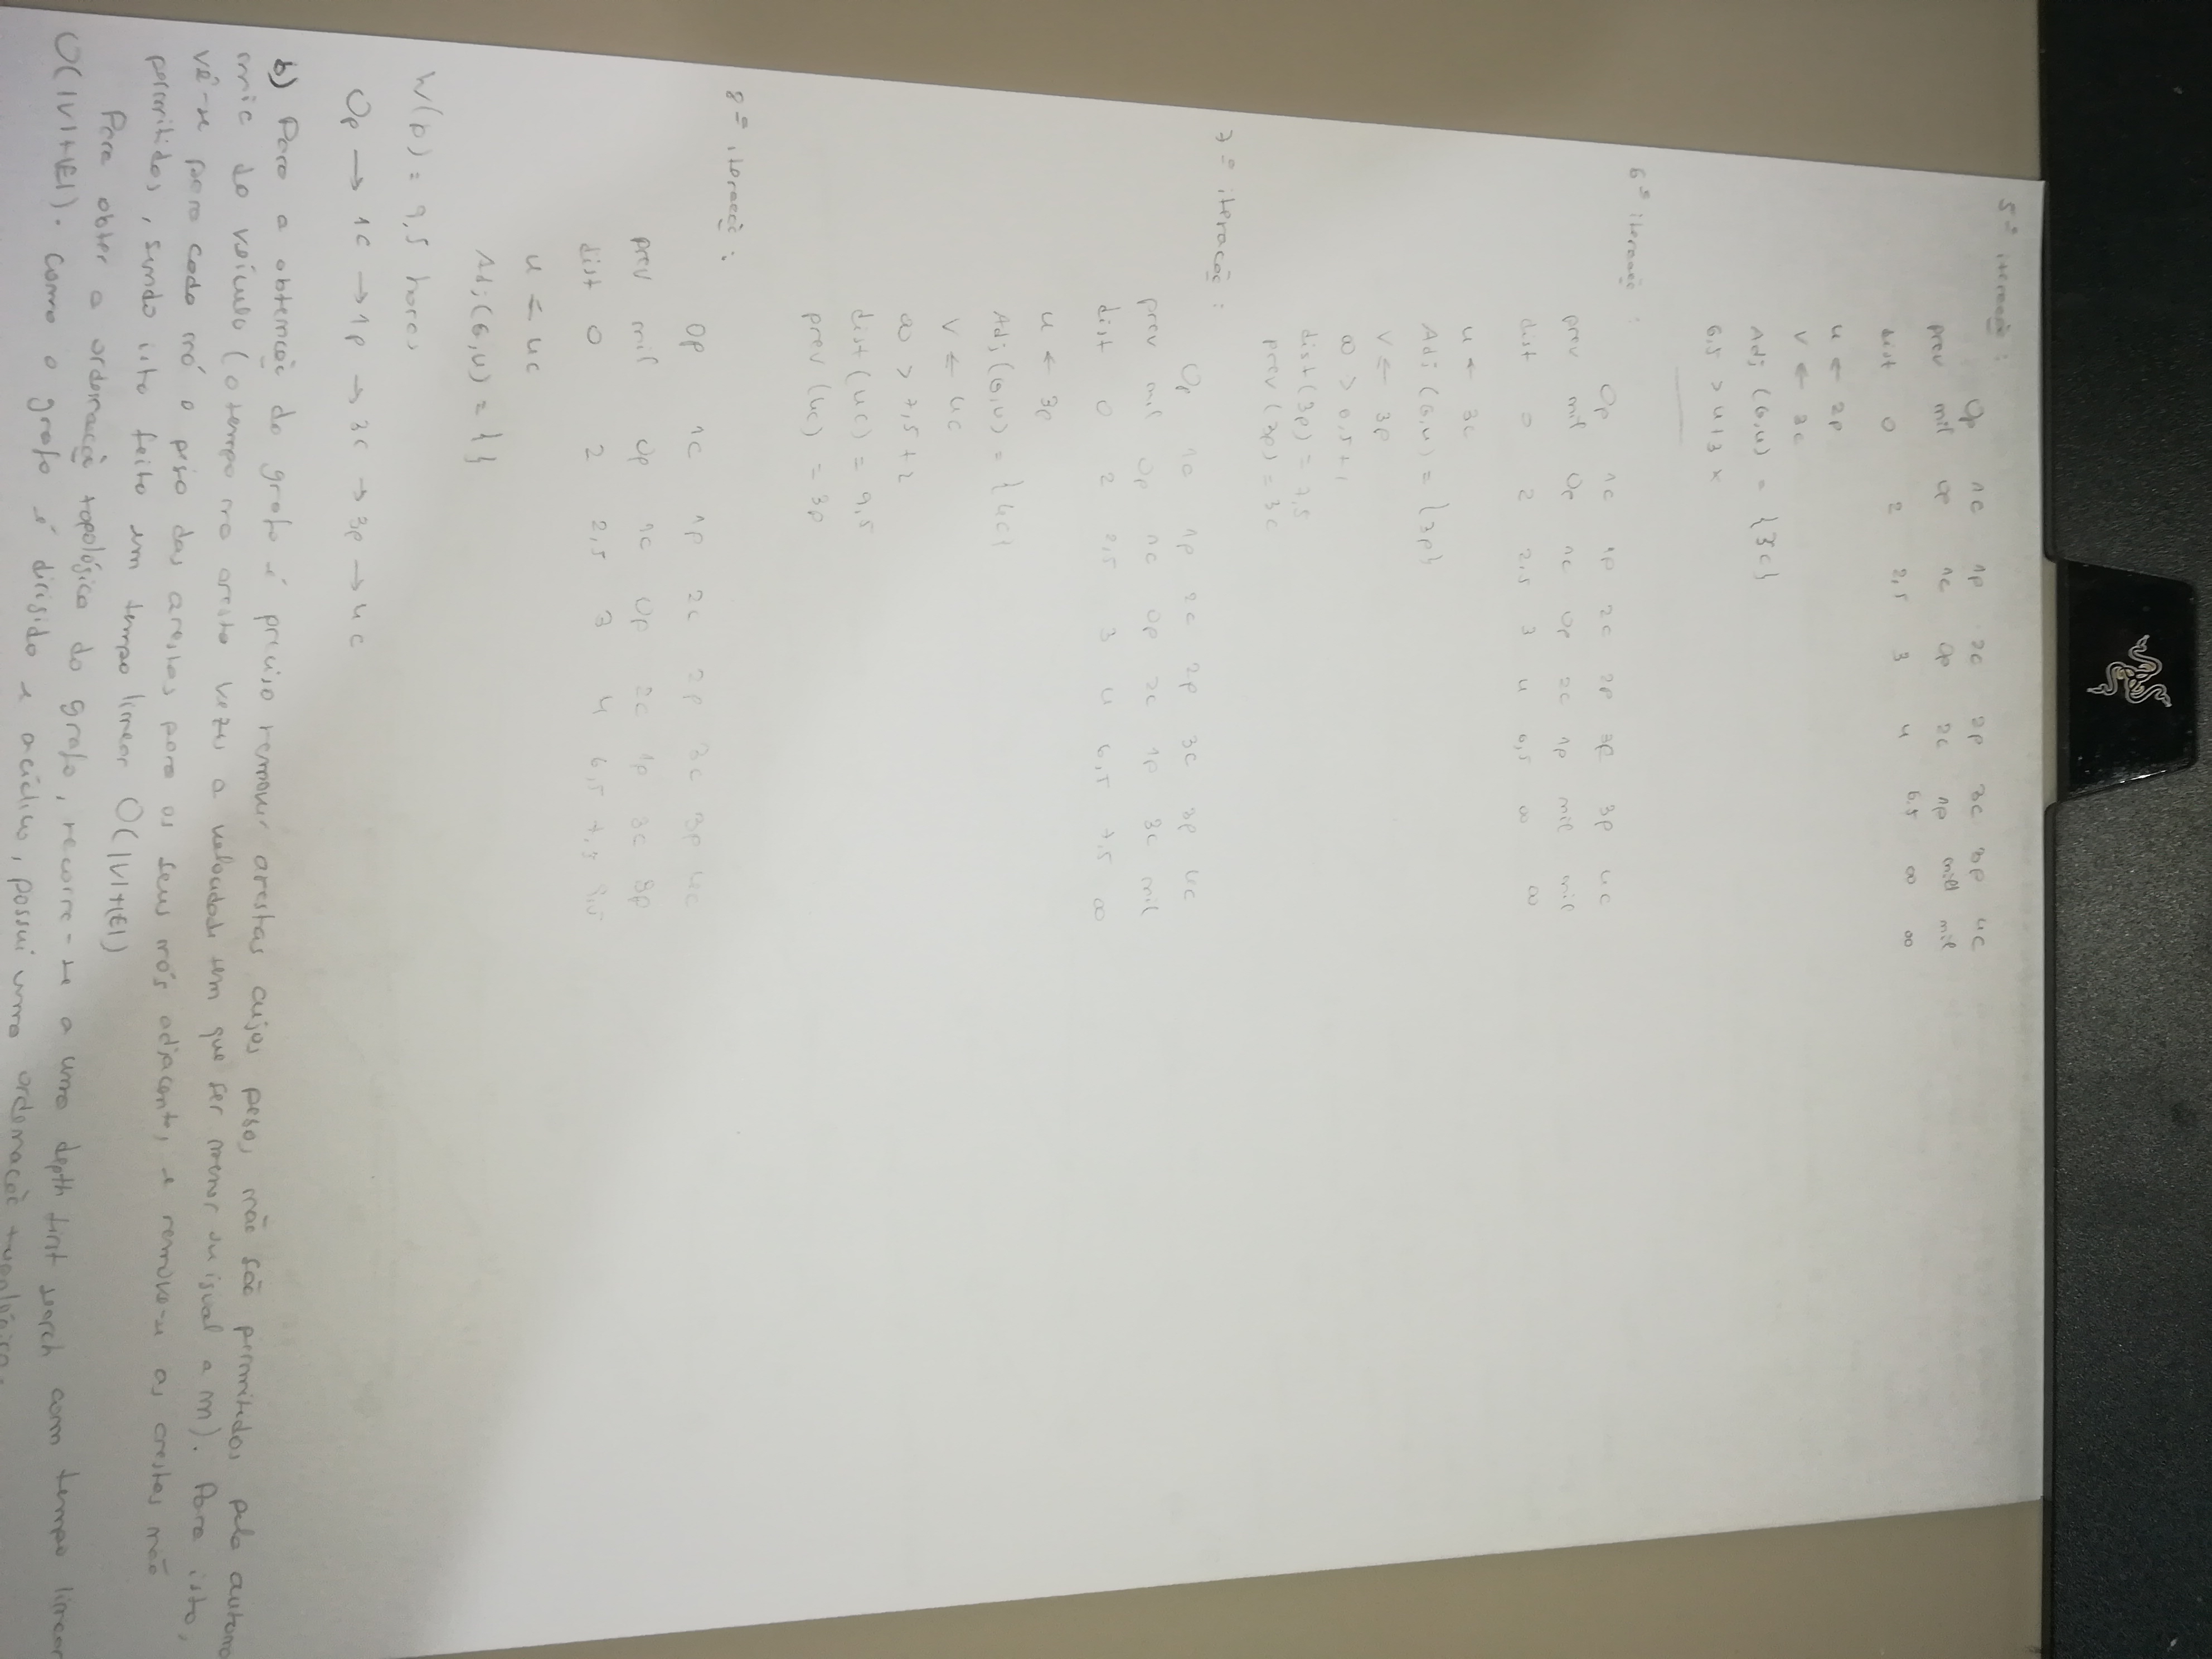 5ª iteração:
0p 1c 1p 2c 2p 3c 3p 4c
prev nil 0p 1c 0p 2c 1p nil nil
dist 0 2 2,5 3 4 6.5 ∞ ∞
u ← 2p
v ← 3c
Adj (G,u) = {3c}
6,5 > 4+3 ×
6ª iteração:
0p 1c 1p 2c 2p 3c 3p 4c
prev nil 0p 1c 0p 2c 1p nil nil
dist 0 2 2,5 3 4 6,5 ∞ ∞
u ← 3c
Adj (G,u) = {3p}
v ← 3p
∞ > 6,5+1
dist(3p) = 7,5
prev (3p) = 3c
7ª iteração:
0p 1c 1p 2c 2p 3c 3p 4c
prev nil 0p 1c 0p 2c 1p 3c nil
dist 0 2 2,5 3 4 6,5 7,5 ∞
u ← 3p
Adj(G,u) = {4c}
v ← 4c
∞ > 7,5+2
dist(4c) = 9,5
prev (4c) = 3p
8ª iteração:
0p 1c 1p 2c 2p 3c 3p 4c
prev nil 0p 1c 0p 2c 1p 3c 3p
dist 0 2 2,5 3 4 6,5 7,5 9,5
u ← 4c
Adj(G,u) = { }
W(p) = 9,5 horas
0p → 1c → 1p → 3c → 3p → 4c
b) Para a obtenção do grafo é preciso remover arestas cujos pesos não são permitidos pela autono
mia do veículo (o tempo na aresta vezes a velocidade tem que ser menor ou igual a m). Para isto,
vê-se para cada nó o peso das arestas para os seus nós adjacentes e remove-se as arestas não
permitidas, sendo isto feito em tempo linear O(|V|+|E|)
Para obter a ordenação topológica do grafo, recorre-se a uma depth first search com tempo linear
O(|V|+|E|). Como o grafo é dirigido e acíclico, possui uma ordenação topológica.